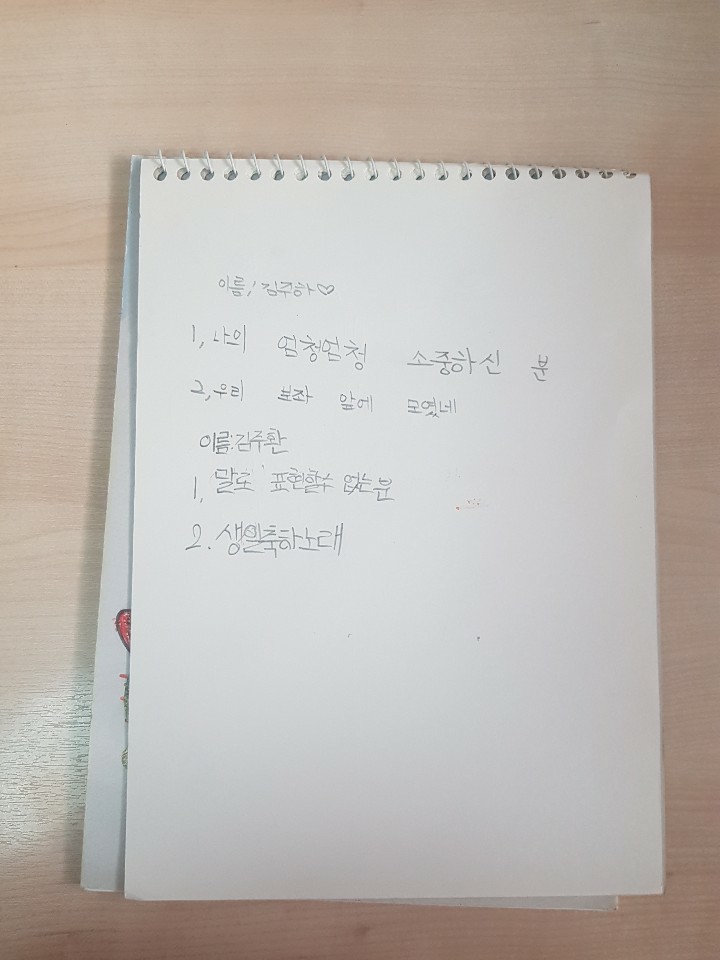 이름; 김주하♡
1, 나의 엄청엄청 소중하신 분
2, 우리 보좌 앞에 모였네
이름:김주환
1, 말로 표현할수 없는분
2. 생일축하노래